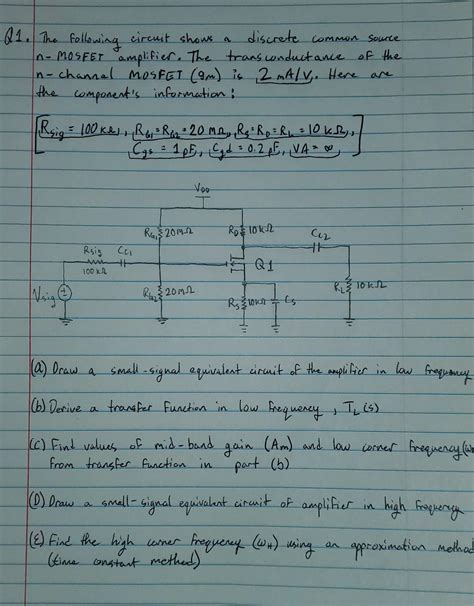 Q1. The following circuit shows a discrete common source
n-MOSFET amplifier. The transconductance of the
n-channel MOSFET (gm) is 2 mA/V. Here are
the component's information:
Rsig = 100 kΩ, RG1 = RG2 = 20 MΩ, RS = RD = RL = 10 kΩ,
Cgs = 1 pF, Cgd = 0.2 pF, VA = ∞
VDD
RG1 20MΩ
RD 10kΩ
CC2
Rsig
CC1
100 kΩ
Q1
Vsig
RG2 20MΩ
RS 10kΩ
CS
RL 10 kΩ
(a) Draw a small-signal equivalent circuit of the amplifier in low frequency
(b) Derive a transfer function in low frequency, TL(s)
(C) Find values of mid-band gain (Am) and low corner frequency (ω
from transfer function in part (b)
(D) Draw a small-signal equivalent circuit of amplifier in high frequency
(E) Find the high corner frequency (ωH) using an approximation method
(time constant method)